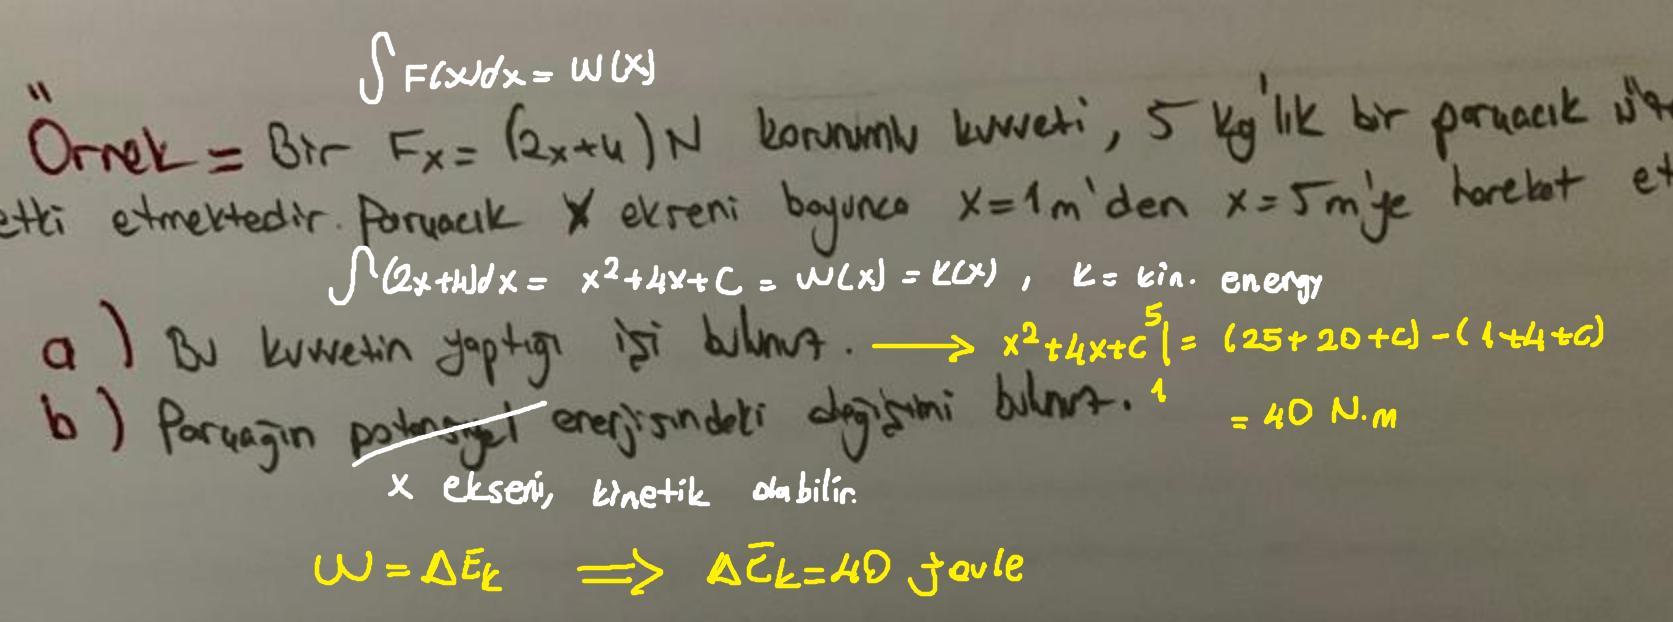 ∫F(x)dx = W(x)
Örnek = Bir Fx = (2x+4)N korunumlu kuvveti, 5 kg'lık bir parçacık
etki etmektedir. Parçacık X ekseni boyunca x=1m'den x=5m'ye hareket et
∫(2x+4)dx = x²+4x+C = W(x) = K(x), K = kin. energy
a) Bu kuvvetin yaptığı işi bulunuz. → x²+4x+C |₁⁵ = (25+20+C)-(1+4+C)
= 40 N.m
b) Parçağın potansiyel enerjisindeki değişimi bulunuz.
x ekseni, kinetik olabilir.
W = ΔEk ⇒ ΔEk=40 joule